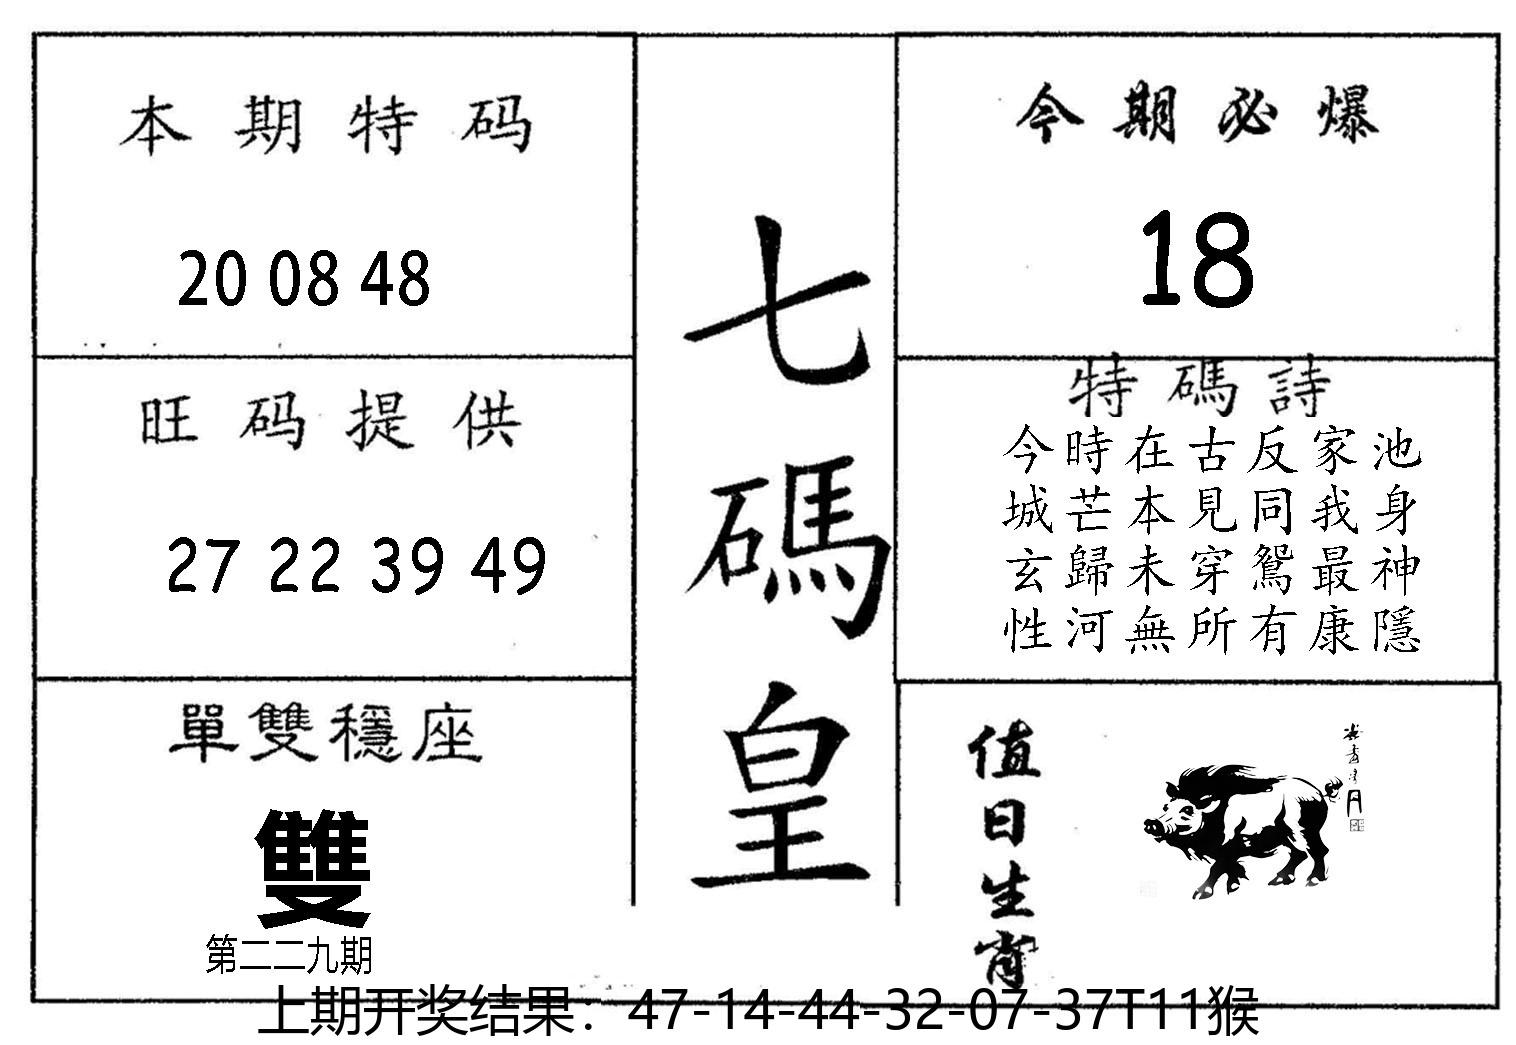 本期特码
20 08 48
旺码提供
27 22 39 49
單雙穩座
雙
第二二九期
七碼皇
今期必爆
18
特碼詩
今時在古反家池
城芒本見同我身
玄歸未穿鴛最神
性河無所有康隱
值日生肖
上期开奖结果：47-14-44-32-07-37T11猴